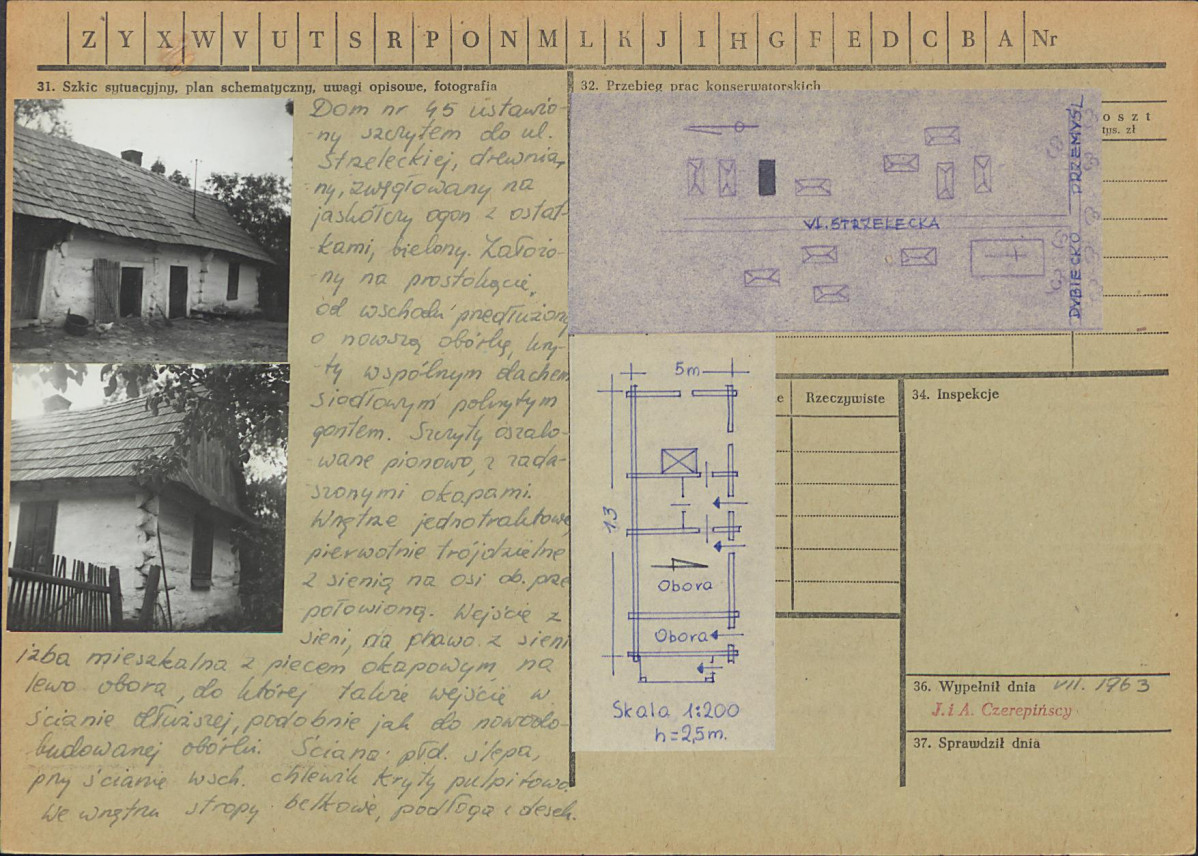 Z Y X W V U T S R P O N M L K J I H G F E D C B A Nr
31. Szkic sytuacyjny, plan schematyczny, uwagi opisowe, fotografia
Dom nr 45 ustawio-
ny szczytem do ul.
Strzeleckiej, drewnia-
ny, zwęgłowany na
jaskółczy ogon z ostat-
kami, bielony. Założo-
ny na prostokącie,
od wschodu przedłużony
o nowszą obórkę, kry-
ty wspólnym dachem
siodłowym pokrytym
gontem. Szczyty oszalo-
wane pionowo, z zada-
szonymi okapami.
Wnętrze jednotraktowe
pierwotnie trójdzielne
z sienią na osi ob. prze
połowioną. Wejście z
sieni, na prawo z sieni
izba mieszkalna z piecem okapowym na
lewo obora, do której także wejście w
ścianie dłuższej, podobnie jak do nowodo-
budowanej obórki. Ściana płd. ślepa,
przy ścianie wsch. chlewik kryty pulpitowo.
We wnętrzu stropy belkowe, podłoga z desek.
32. Przebieg prac konserwatorskich
oszt
tys. zł
UL. STRZELECKA
DUBIECKO PRZEMYŚL
5m
13
Obora
Obora
Skala 1:200
h=2,5m.
e Rzeczywiste
34. Inspekcje
36. Wypełnił dnia VII. 1963
J. i A. Czerepińscy
37. Sprawdził dnia